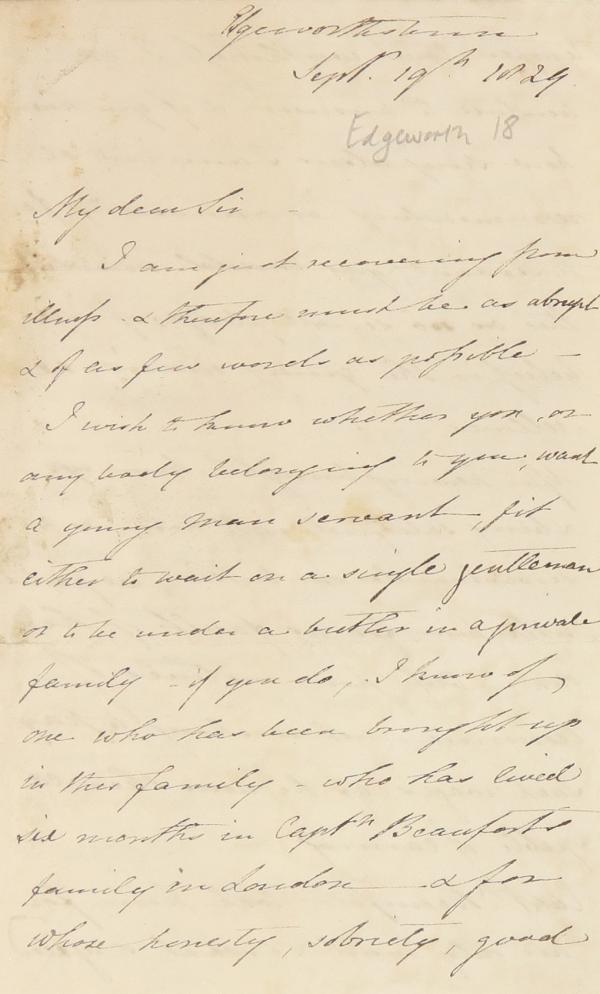 Edgeworthstown
Septr. 19th 1829.
Edgeworth 18
My dear Sir -
I am just recovering from
illness - & therefore must be as abrupt
& of as few words as possible -
I wish to know whether you, or
any body belonging to you, want
a young man servant, fit
either to wait on a single gentleman
or to be under a butler in a private
family - if you do, I know of
one who has been brought up
in this family - who has lived
six months in Captn Beauforts
family in London & for
whose honesty, sobriety, good